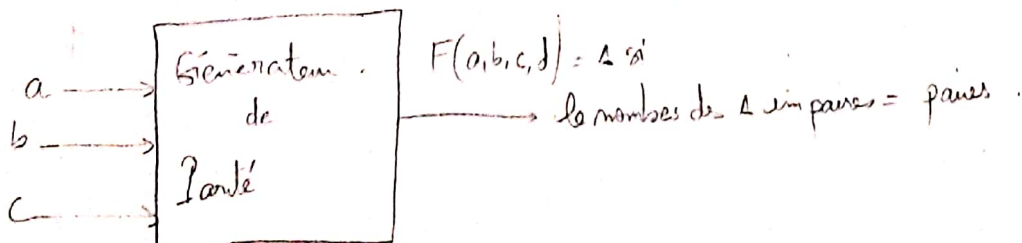 Générateur
de
Parité
a
b
c
F(a,b,c,d) = 1 si
le nombres de 1 impaires = paires.